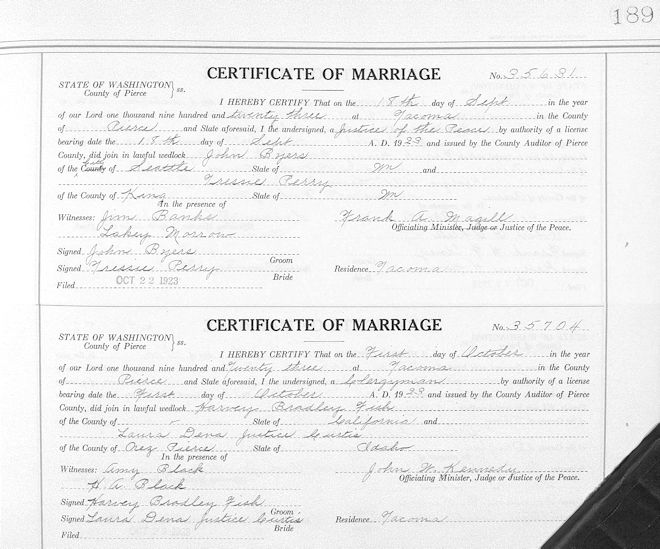 189
CERTIFICATE OF MARRIAGE No. 35631
STATE OF WASHINGTON
County of Pierce } ss.
I HEREBY CERTIFY That on the 18th day of Sept in the year
of our Lord one thousand nine hundred and twenty three at Tacoma in the County
of Pierce and State aforesaid, I the undersigned, a Justice of the Peace by authority of a license
bearing date the 18th day of Sept A. D. 1923 and issued by the County Auditor of Pierce
County, did join in lawful wedlock John Byers
of the County of Seattle State of Wn and
Tressie Perry
of the County of King State of Wn
In the presence of
Witnesses: Jim Banks Frank A. Magill
Lakey Morrow Officiating Minister, Judge or Justice of the Peace.
Signed John Byers Groom
Signed Tressie Perry Bride Residence Tacoma
Filed OCT 22 1923
CERTIFICATE OF MARRIAGE No. 35704
STATE OF WASHINGTON
County of Pierce } ss.
I HEREBY CERTIFY That on the First day of October in the year
of our Lord one thousand nine hundred and Twenty three at Tacoma in the County
of Pierce and State aforesaid, I the undersigned, a Clergyman by authority of a license
bearing date the First day of October A. D. 1923 and issued by the County Auditor of Pierce
County, did join in lawful wedlock Harvey Bradley Fish
of the County of - State of California and
Laura Dena Justice Curtis
of the County of Pierce State of Idaho
In the presence of
Witnesses: Amy Black John W. Kennedy
H. A. Black Officiating Minister, Judge or Justice of the Peace.
Signed Harvey Bradley Fish Groom
Signed Laura Dena Justice Curtis Bride Residence Tacoma
Filed